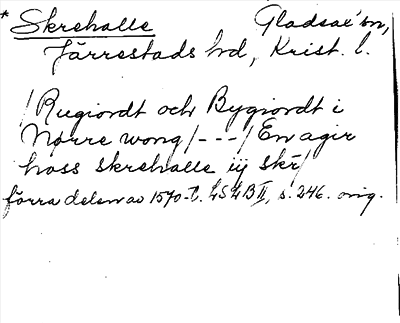 * Skrehalle Gladsax' sn,
Järrestads hd, Krist. l.
/Rugiordt och Bygiordt i
Nørre wong/---/En agir
hoss skrehalle iij skr/
förra delen av 1570-t. LSLB II, s. 246. orig.